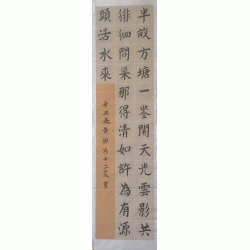 半畝方塘一鉴開天光雲影共
徘徊問渠那得清如許為有源
頭活水來
辛丑
十二歲書